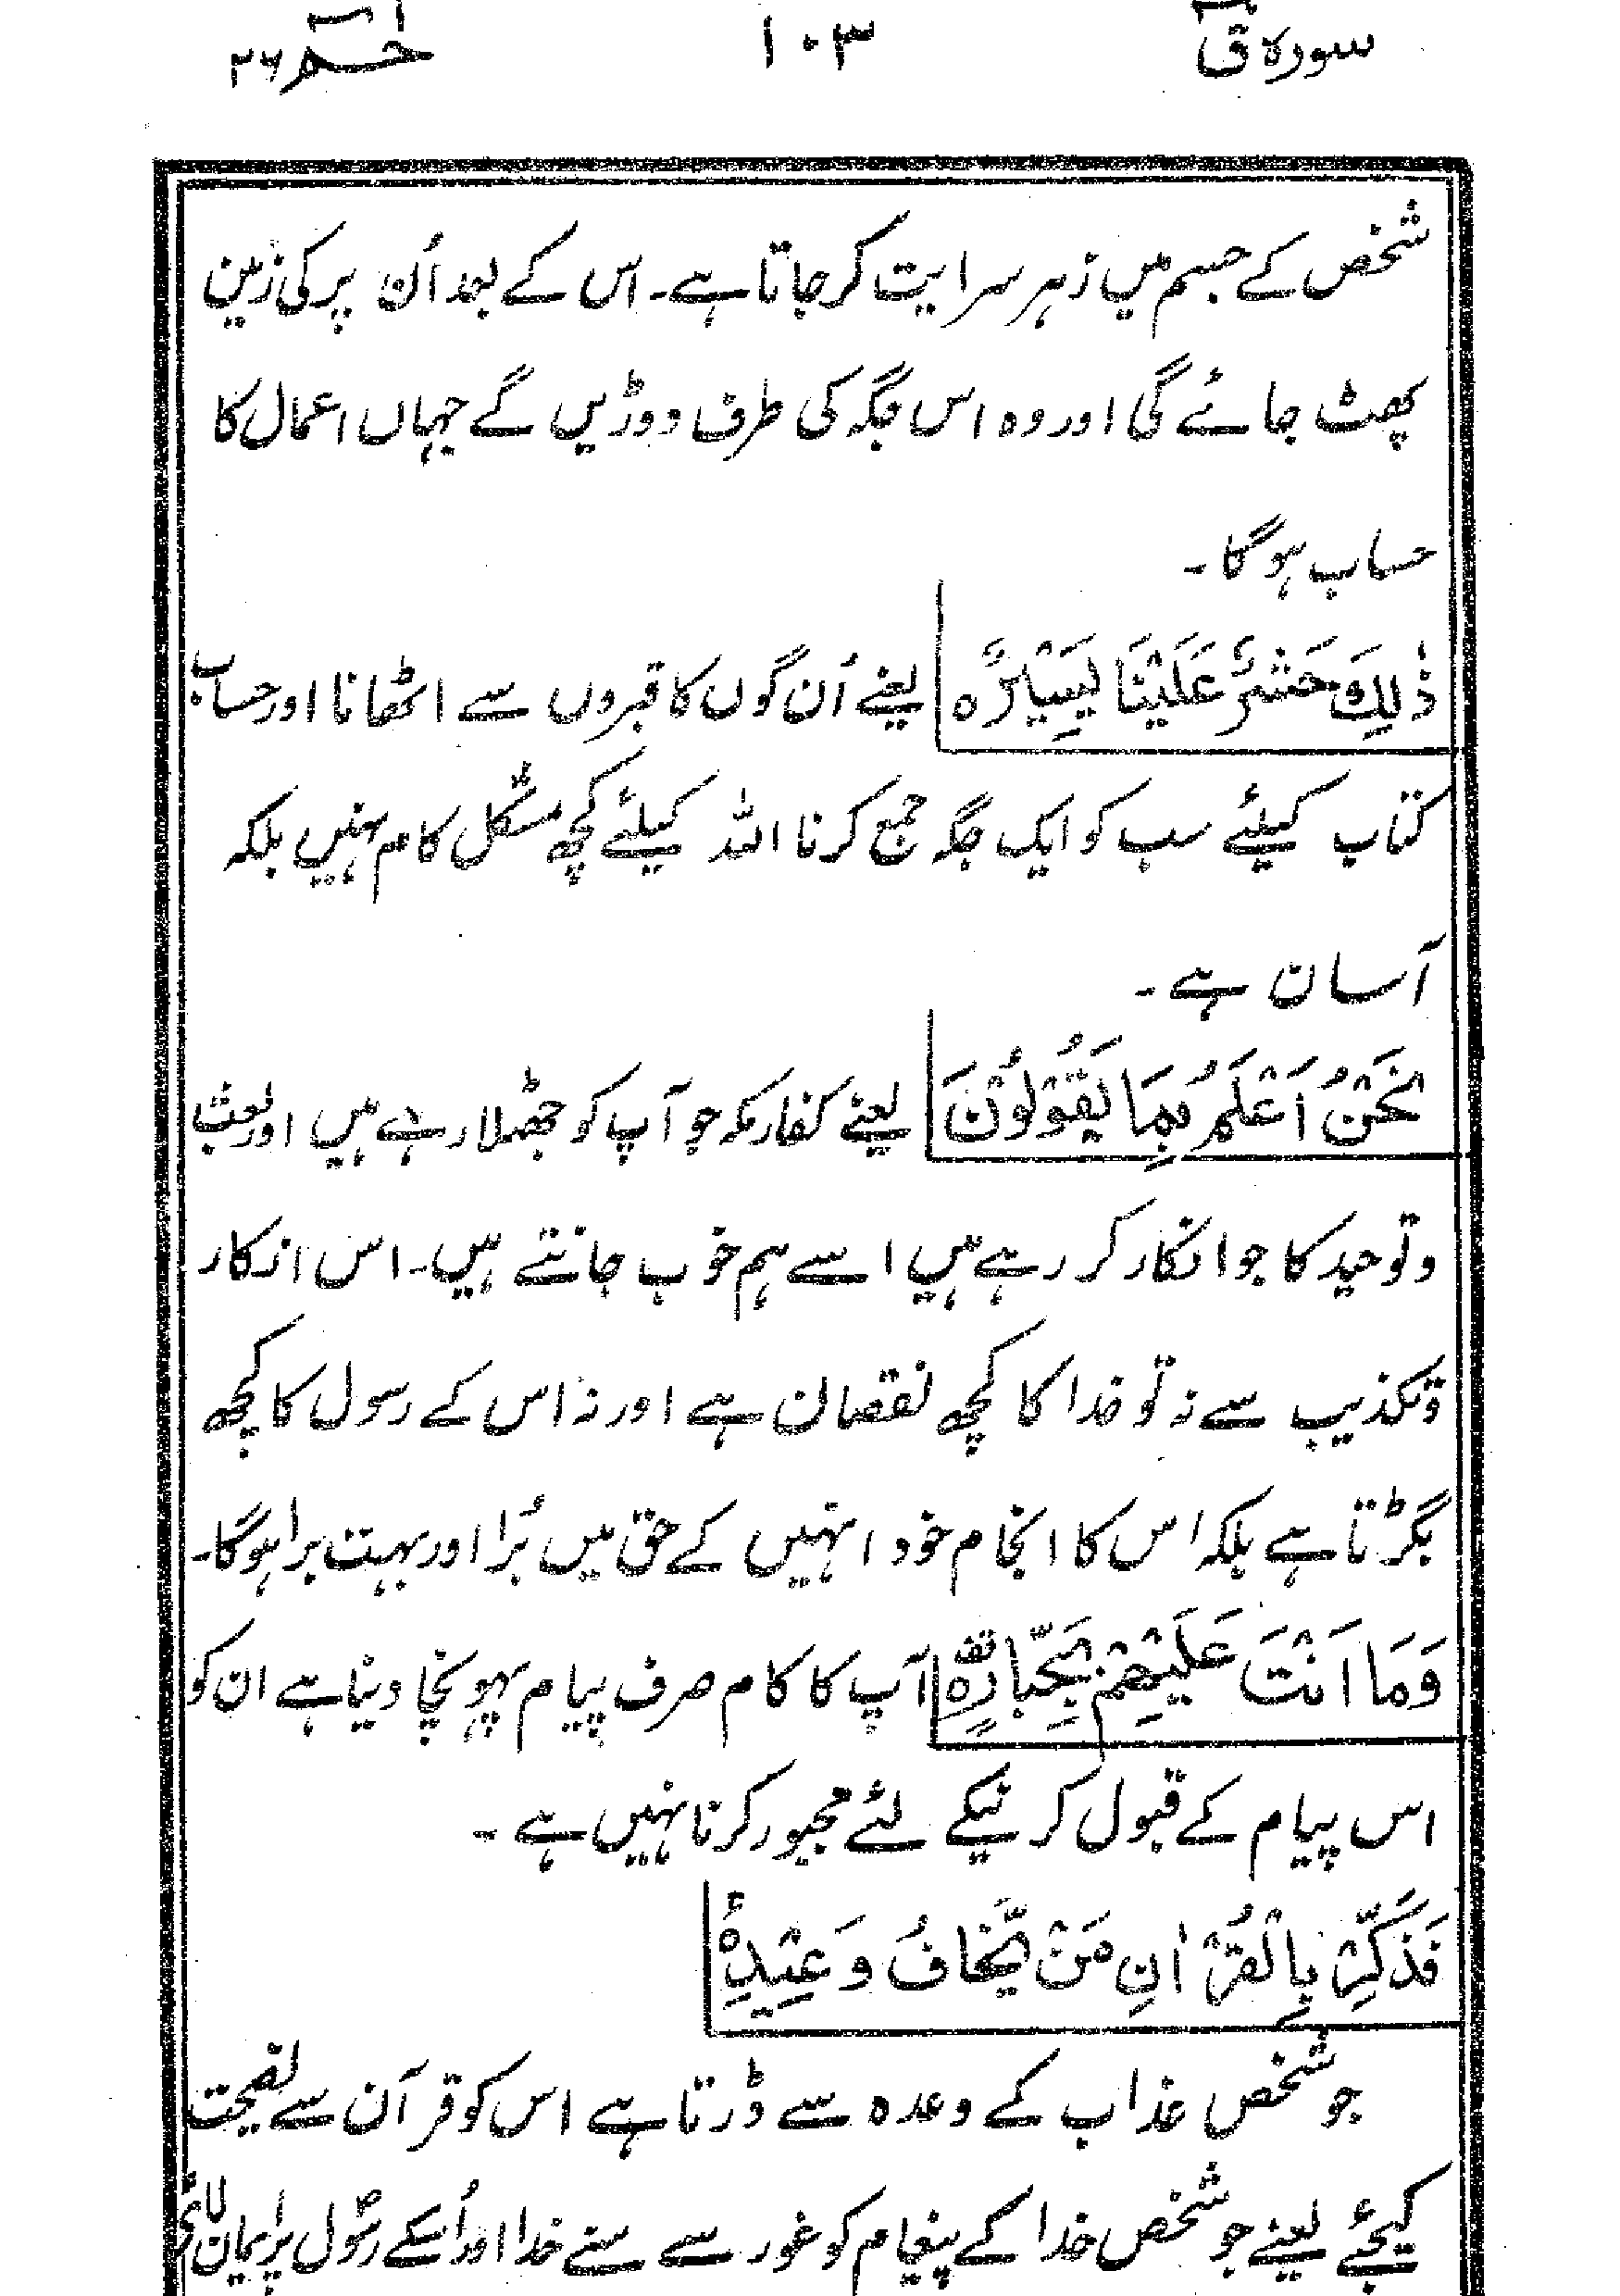 سورہ قٓ ۱۰۳ حٰـمٓ ۲۶
شخص کے جسم میں زہر سرایت کر جاتا ہے۔ اس کے بعد اُن پر کی زمین
پھٹ جائے گی اور وہ اس جگہ کی طرف دوڑیں گے جہاں اعمال کا
حساب ہو گا۔
ذٰلِكَ حَشْرٌ عَلَيْنَا يَسِيْرٌ ہ یعنے اُن لوگوں کا قبروں سے اٹھانا اور حساب
کتاب کیلئے سب کو ایک جگہ جمع کرنا اللہ کیلئے کچھ مشکل کام نہیں بلکہ
آسان ہے۔
نَحْنُ اَعْلَمُ بِمَا يَقُوْلُوْنَ یعنے کفار مکہ جو آپ کو جھٹلا رہے ہیں اور بعث
و توحید کا جو انکار کر رہے ہیں اسے ہم خوب جانتے ہیں۔ اس انکار
و تکذیب سے نہ تو خدا کا کچھ نقصان ہے اور نہ اس کے رسول کا کچھ
بگڑتا ہے بلکہ اس کا انجام خود انہیں کے حق میں بُرا اور بہت برا ہو گا۔
وَمَا اَنْتَ عَلَيْهِمْ بِجَبَّارٍ ہ قف آپ کا کام صرف پیام پہونچا دینا ہے ان کو
اس پیام کے قبول کرنیکے لئے مجبور کرنا نہیں ہے۔
فَذَكِّرْ بِالْقُرْاٰنِ مَنْ يَّخَافُ وَعِيْدِ ہ
جو شخص عذاب کے وعدہ سے ڈرتا ہے اس کو قرآن سے نصیحت
کیجئے یعنے جو شخص خدا کے پیغام کو غور سے سنے خدا اور اُسکے رسُول پر ایمان لائے